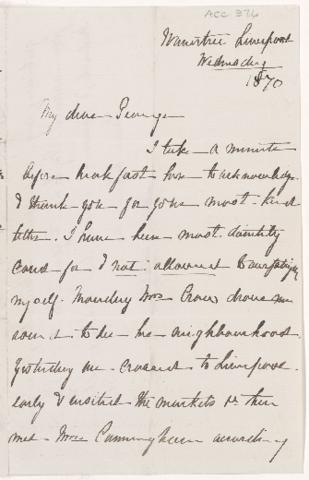 ACC 376
Wavertree Liverpool
Wednesday
1870
My dear George
I take a minute
before breakfast here to acknowledge
& thank you for your most kind
letter. I have been most
cared for & not allowed to
myself. Monday Mrs drove me
about to see her neighbourhood.
Yesterday we crossed to Liverpool
early & visited the markets &c then
met Mrs Cunningham according